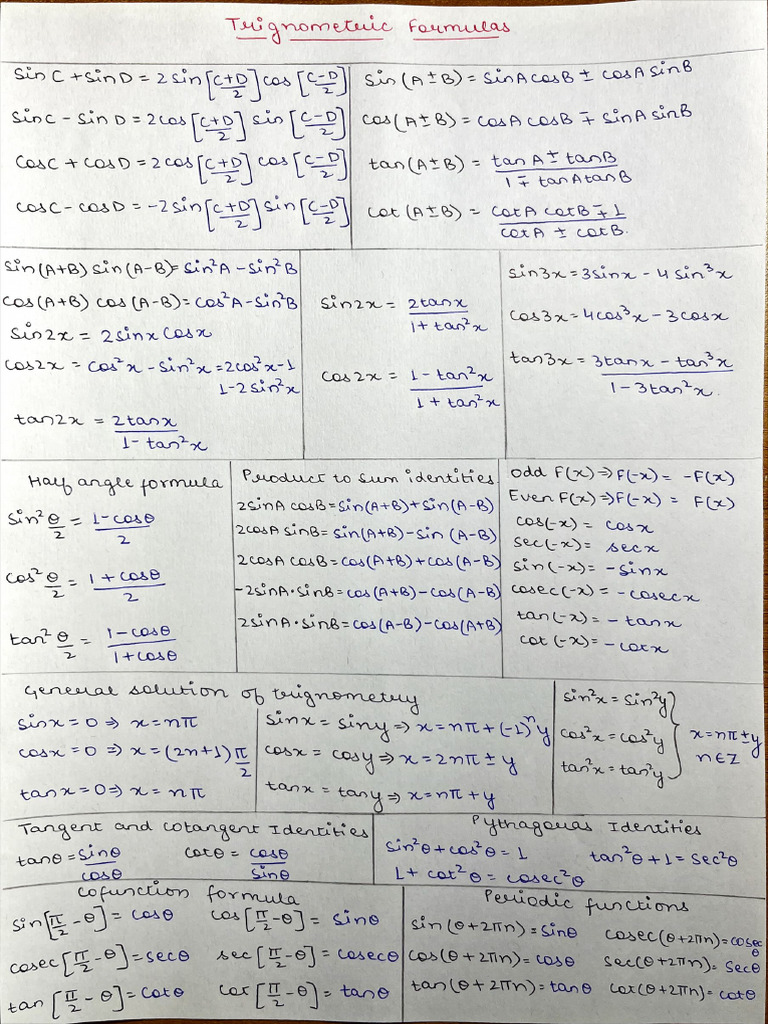 Trignometric Formulas
SinC + SinD = 2 Sin[C+D/2] Cos[C-D/2]
SinC - SinD = 2Cos[C+D/2] Sin[C-D/2]
CosC + CosD = 2Cos[C+D/2] Cos[C-D/2]
CosC - CosD = -2Sin[C+D/2] Sin[C-D/2]
Sin(A±B) = SinA CosB ± CosA SinB
Cos(A±B) = CosA CosB ∓ SinA SinB
tan(A±B) = tanA ± tanB / 1 ∓ tanA tanB
Cot(A±B) = CotA CotB ∓ 1 / CotA ± CotB.
Sin(A+B) Sin(A-B) = Sin²A - Sin²B
Cos(A+B) Cos(A-B) = Cos²A - Sin²B
Sin2x = 2Sinx Cosx
Cos2x = Cos²x - Sin²x = 2Cos²x - 1
1 - 2Sin²x
tan2x = 2tanx / 1 - tan²x
Sin2x = 2tanx / 1 + tan²x
Cos2x = 1 - tan²x / 1 + tan²x
Sin3x = 3Sinx - 4Sin³x
Cos3x = 4Cos³x - 3Cosx
tan3x = 3tanx - tan³x / 1 - 3tan²x.
Half angle formula
Sin²θ/2 = 1 - Cosθ / 2
Cos²θ/2 = 1 + Cosθ / 2
tan²θ/2 = 1 - Cosθ / 1 + Cosθ
Product to Sum identities
2SinA CosB = Sin(A+B) + Sin(A-B)
2CosA SinB = Sin(A+B) - Sin(A-B)
2CosA CosB = Cos(A+B) + Cos(A-B)
-2SinA·SinB = Cos(A+B) - Cos(A-B)
2SinA·SinB = Cos(A-B) - Cos(A+B)
Odd F(x) ⇒ F(-x) = -F(x)
Even F(x) ⇒ F(-x) = F(x)
Cos(-x) = Cosx
Sec(-x) = Secx
Sin(-x) = -Sinx
Cosec(-x) = -Cosecx
tan(-x) = -tanx
Cot(-x) = -Cotx
General Solution of trignometry
Sinx = 0 ⇒ x = nπ
Cosx = 0 ⇒ x = (2n+1)π/2
tanx = 0 ⇒ x = nπ
Sinx = Siny ⇒ x = nπ + (-1)ⁿy
Cosx = Cosy ⇒ x = 2nπ ± y
tanx = tany ⇒ x = nπ + y
Sin²x = Sin²y
Cos²x = Cos²y
tan²x = tan²y
x = nπ ± y
n ∈ Z
Tangent and Cotangent Identities
tanθ = Sinθ/Cosθ Cotθ = Cosθ/Sinθ
Pythagoras Identities
Sin²θ + Cos²θ = 1 tan²θ + 1 = Sec²θ
1 + Cot²θ = Cosec²θ
Cofunction formula
Sin[π/2 - θ] = Cosθ Cos[π/2 - θ] = Sinθ
Cosec[π/2 - θ] = Secθ Sec[π/2 - θ] = Cosecθ
tan[π/2 - θ] = Cotθ Cot[π/2 - θ] = tanθ
Periodic functions
Sin(θ+2πn) = Sinθ Cosec(θ+2πn) = Cosecθ
Cos(θ+2πn) = Cosθ Sec(θ+2πn) = Secθ
tan(θ+2πn) = tanθ Cot(θ+2πn) = Cotθ